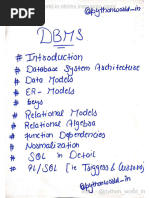 @pythonworld_in
DBMS
# Introduction
# Database System Architecture
# Data Models
# ER - Models
# keys
# Relational Models
# Relational Algebra
# Function Dependencies
# Normalization
# SQL in Detail
# PL/SQL [ie Triggers & cursors]
@python_world_in